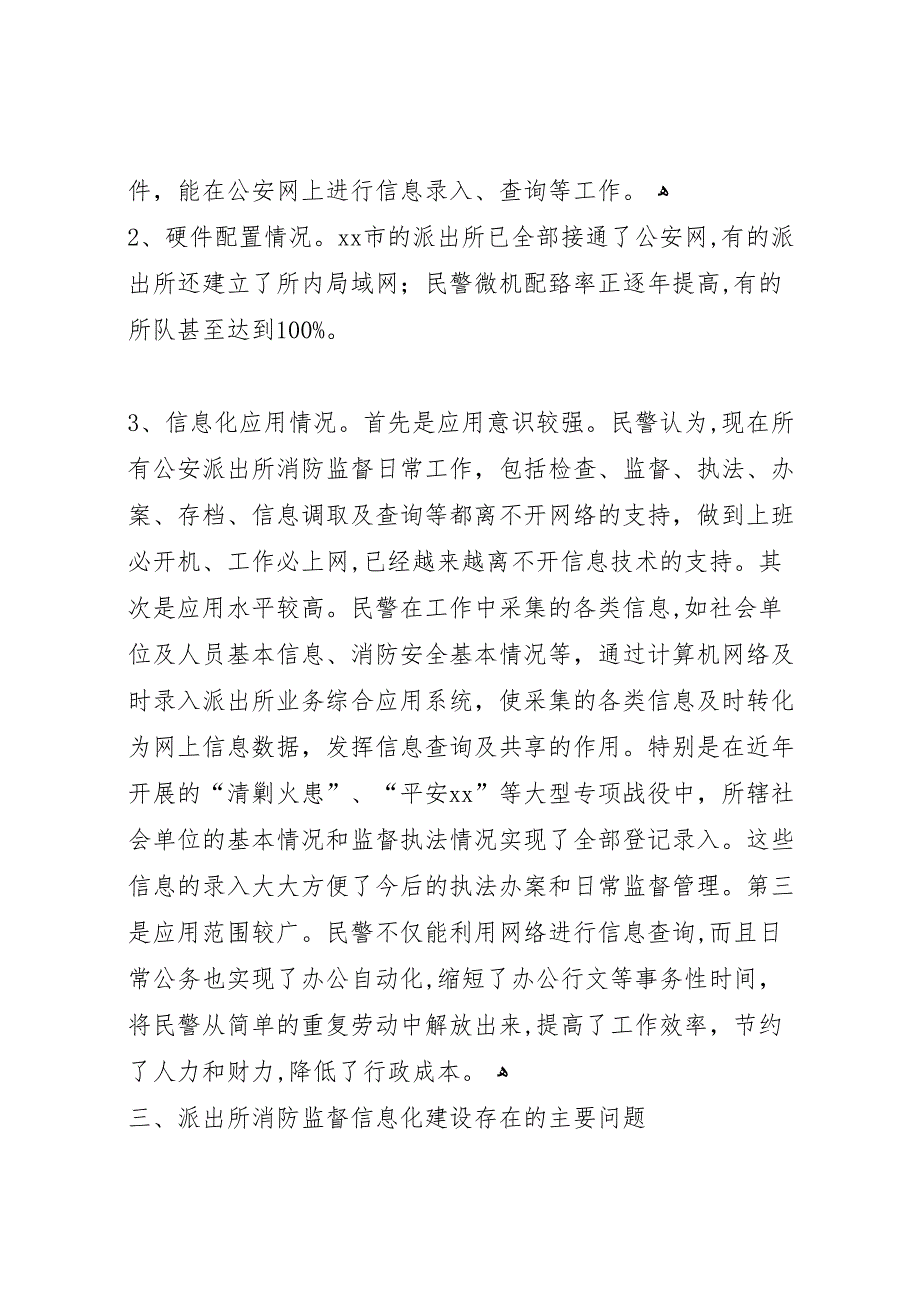 件，能在公安网上进行信息录入、查询等工作。 ﻫ
2、硬件配置情况。xx市的派出所已全部接通了公安网,有的派
出所还建立了所内局域网；民警微机配臵率正逐年提高,有的
所队甚至达到100%。
3、信息化应用情况。首先是应用意识较强。民警认为,现在所
有公安派出所消防监督日常工作，包括检查、监督、执法、办
案、存档、信息调取及查询等都离不开网络的支持，做到上班
必开机、工作必上网,已经越来越离不开信息技术的支持。其
次是应用水平较高。民警在工作中采集的各类信息,如社会单
位及人员基本信息、消防安全基本情况等，通过计算机网络及
时录入派出所业务综合应用系统，使采集的各类信息及时转化
为网上信息数据，发挥信息查询及共享的作用。特别是在近年
开展的“清剿火患”、“平安xx”等大型专项战役中，所辖社
会单位的基本情况和监督执法情况实现了全部登记录入。这些
信息的录入大大方便了今后的执法办案和日常监督管理。第三
是应用范围较广。民警不仅能利用网络进行信息查询,而且日
常公务也实现了办公自动化,缩短了办公行文等事务性时间，
将民警从简单的重复劳动中解放出来,提高了工作效率，节约
了人力和财力,降低了行政成本。 ﻫ
三、派出所消防监督信息化建设存在的主要问题